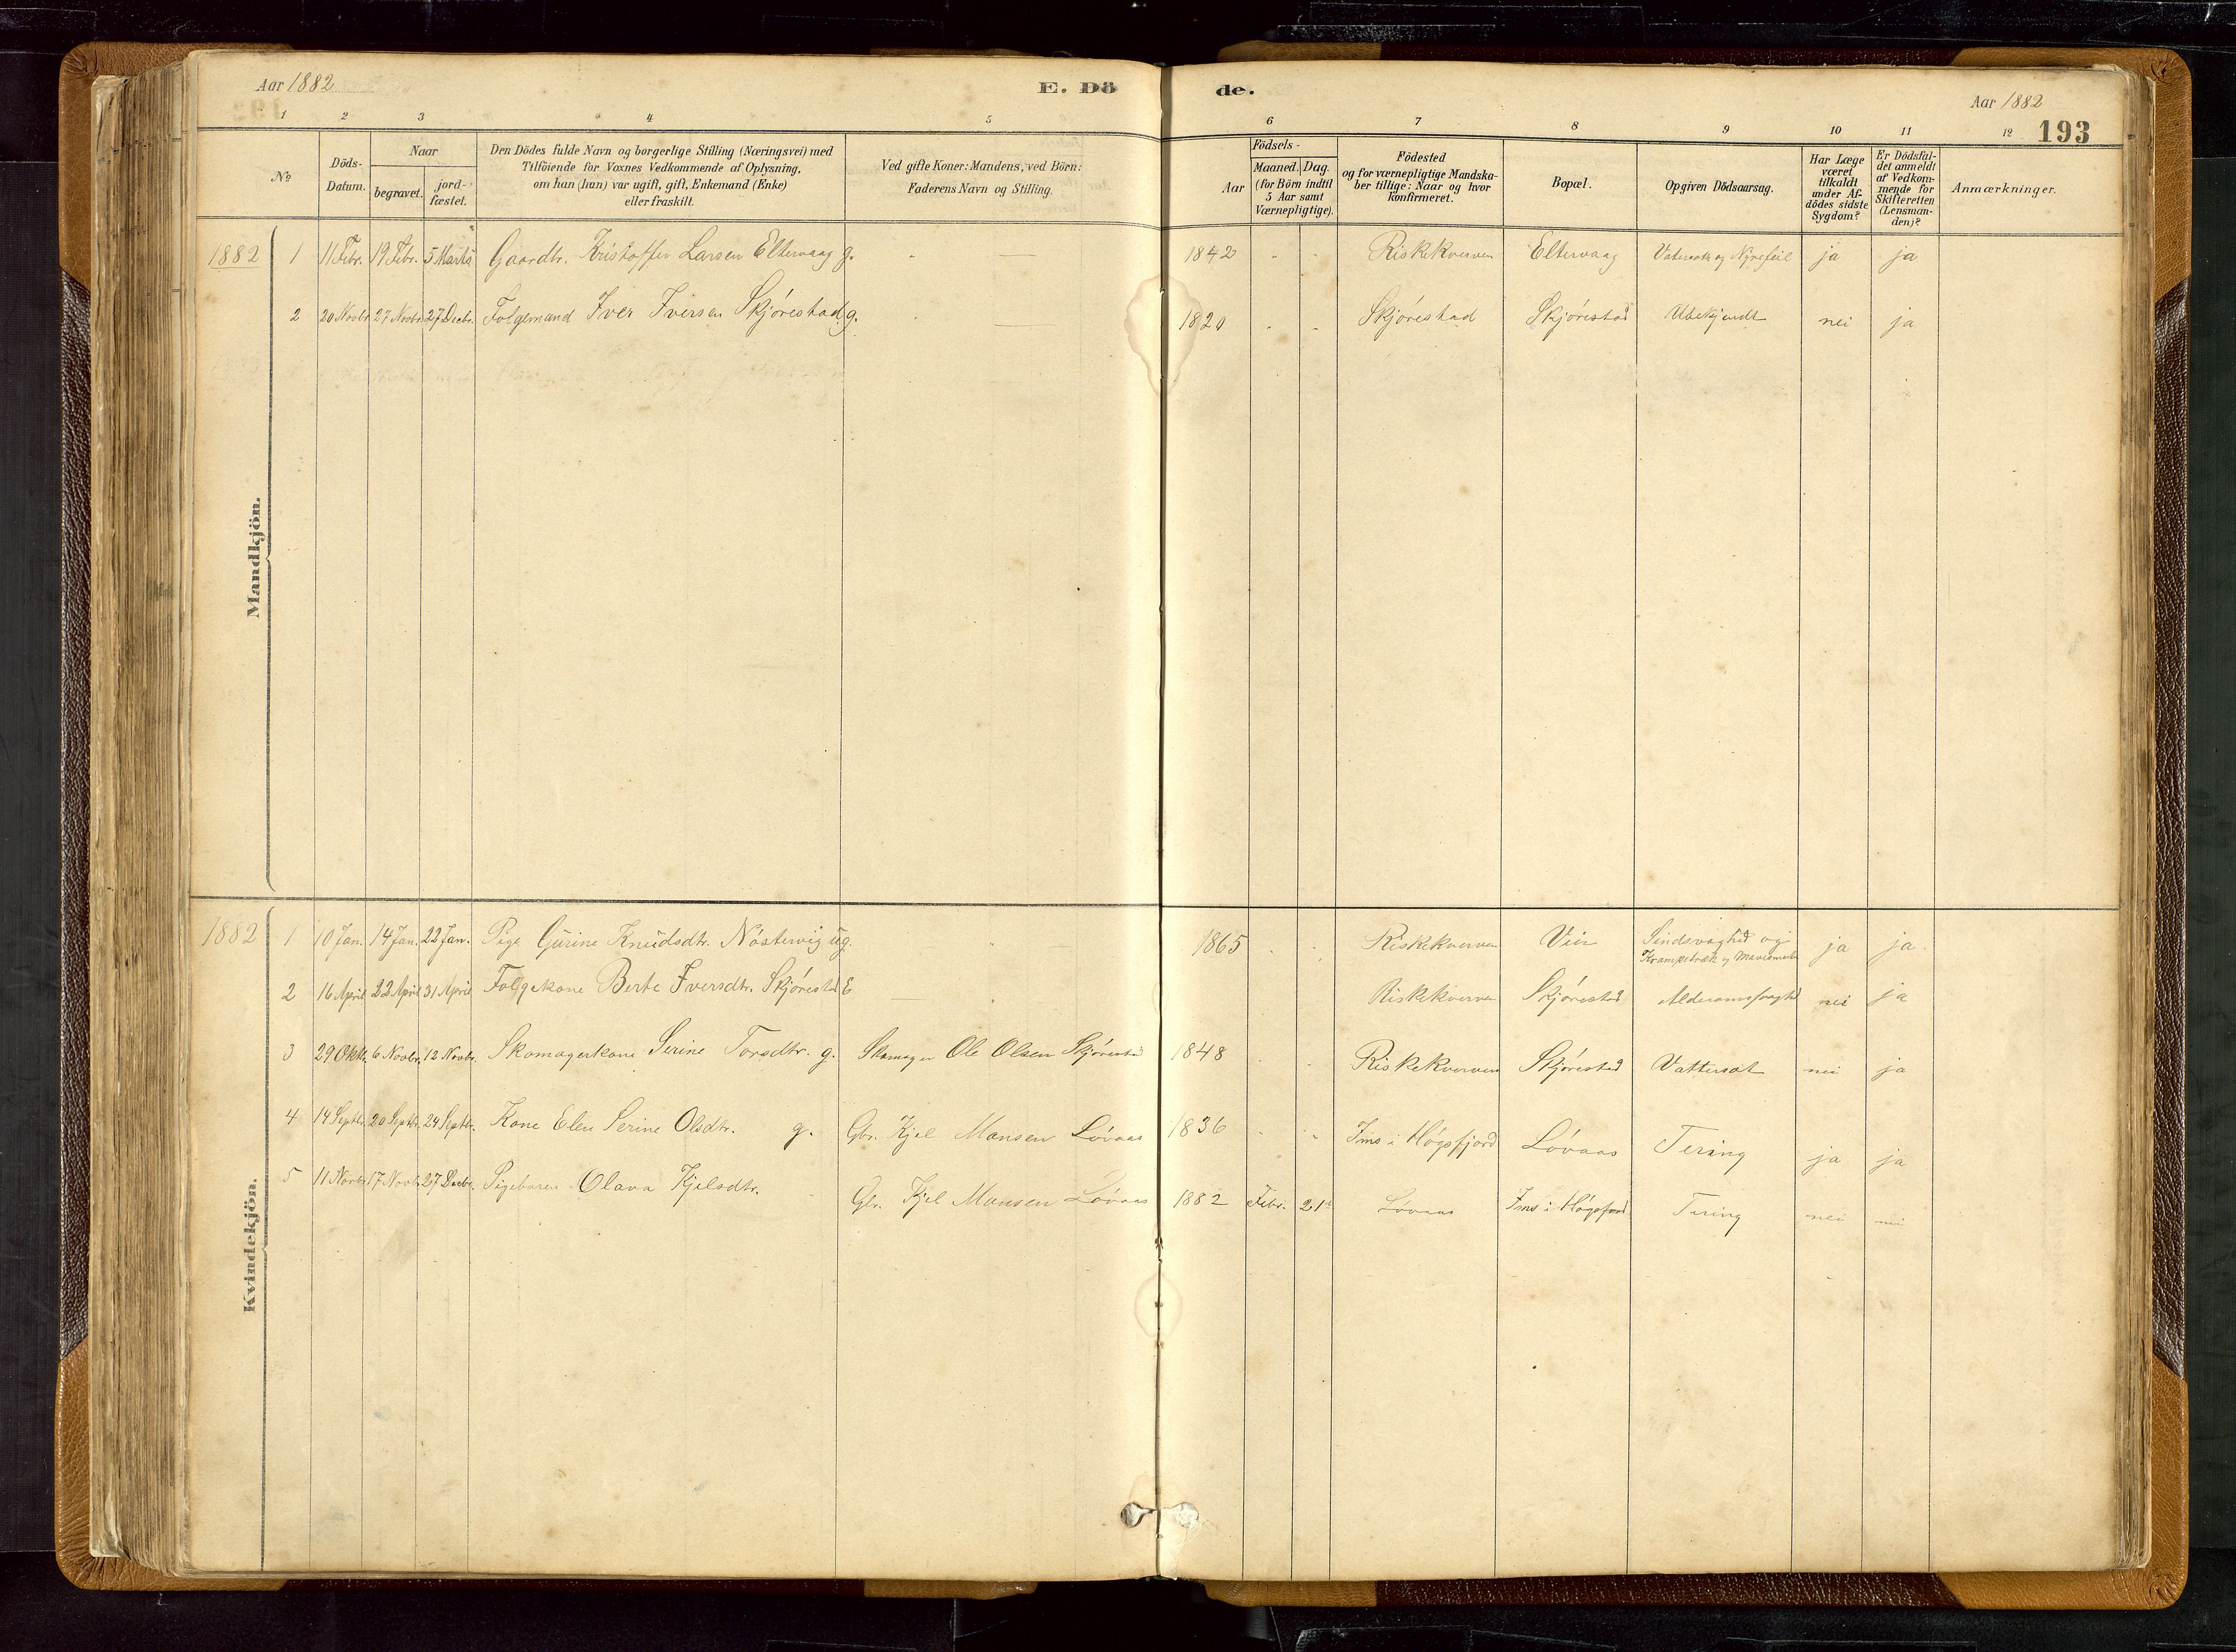 Aar 1882
E. Dö
de.
Aar 1882
193
1 2 3 4 5 6 7 8 9 10 11 12
№
Döds-Datum.
Naar
begravet.
jord-fæstet.
Den Dödes fulde Navn og borgerlige Stilling (Næringsvei) med
Tilföiende for Voxnes Vedkommende af Oplysning,
om han (hun) var ugift, gift, Enkemand (Enke)
eller fraskilt.
Ved gifte Koner: Mandens, ved Börn:
Faderens Navn og Stilling.
Födsels-
Aar
Maaned. Dag.
(for Börn indtil
5 Aar samt
Værnepligtige).
Födested
og for værnepligtige Mandska-
ber tillige: Naar og hvor
konfirmeret.
Bopæl.
Opgiven Dödsaarsag.
Har Læge
været
tilkaldt
under Af-
dödes sidste
Sygdom?
Er Dödsfal-
det anmeldt
af Vedkom-
mende for
Skifteretten
(Lensman-
den)?
Anmærkninger.
Mandkjön.
1882 1 11 Febr. 19 Febr. 5 Marts Gaardbr. Kristoffer Larsen Eltervaag g. — 1842 Riskekverven Eltervaag Vatersot og Nyrefeil ja ja
2 20 Novbr. 27 Novbr. 27 Decbr. Folgemand Iver Iversen Skjørestad g. — 1820 Skjørestad Skjørestad Ubekjendt nei ja
Kvindekjön.
1882 1 10 Jan. 14 Jan. 22 Jan. Pige Gurine Knudsdtr. Nøstervig ug. 1865 Riskekverven Vier Sindsvaghed og
Krampetræk og ja ja
2 16 April 22 April 31 April Folgekone Berte Iversdtr. Skjørestad E — Riskekverven Skjørestad nei ja
3 29 Oktb. 6 Novbr. 12 Novbr. Skomagerkone Serine Torsdtr. g. Skomager Ole Olsen Skjørestad 1848 Riskekverven Skjørestad Vattersot nei ja
4 14 Septbr. 20 Septbr. 24 Septbr. Kone Elen Serine Olsdtr. g. Gbr. Kjel Monsen Løvaas 1836 Ims i Høgsfjord Løvaas Tering ja ja
5 11 Novbr. 17 Novbr. 27 Decbr. Pigebarn Olava Kjelsdtr. Gbr. Kjel Monsen Løvaas 1882 Febr. 21 Løvaas Ims i Høgsfjord Tering nei nei